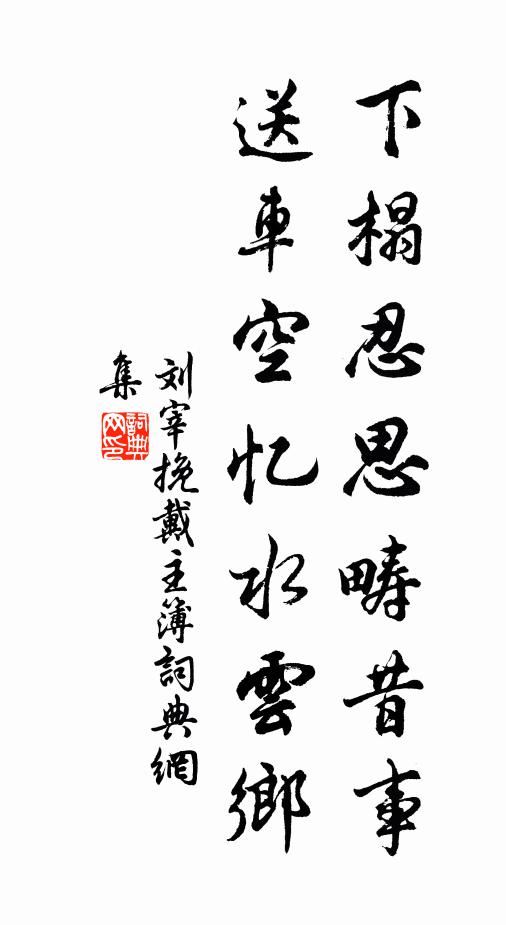 下榻忍思畴昔事
送車空忆水雲鄉
刘宰挽戴主簿詞典網
集
詞典网印